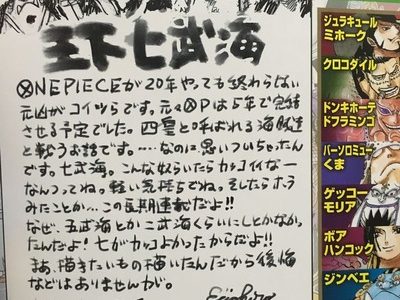 王下七武海
ⓍNEPIECEが20年やっても終わらない
元凶がコイツらです。元々ⓍPは5年で完結
させる予定でした。四皇と呼ばれる海賊達
と戦うお話です。……なのに思いついちゃったん
です。七武海。こんな奴らいたらカッコイイなー
なんつってね。軽い気持ちでね。そしたらホラ
みたことか…この長期連載だよ!!
なぜ、五武海とか二武海くらいにしとかなか
ったんだよ!七がカッコよかったからだよ!!
まぁ、描きたいもの描いたんだから後悔
などはありませんが。
Eiichiro
ジュラキュール
ミホーク
クロコダイル
ドンキホーテ
ドフラミンゴ
バーソロミュー
くま
ゲッコー
モリア
ボア
ハンコック
ジンベエ